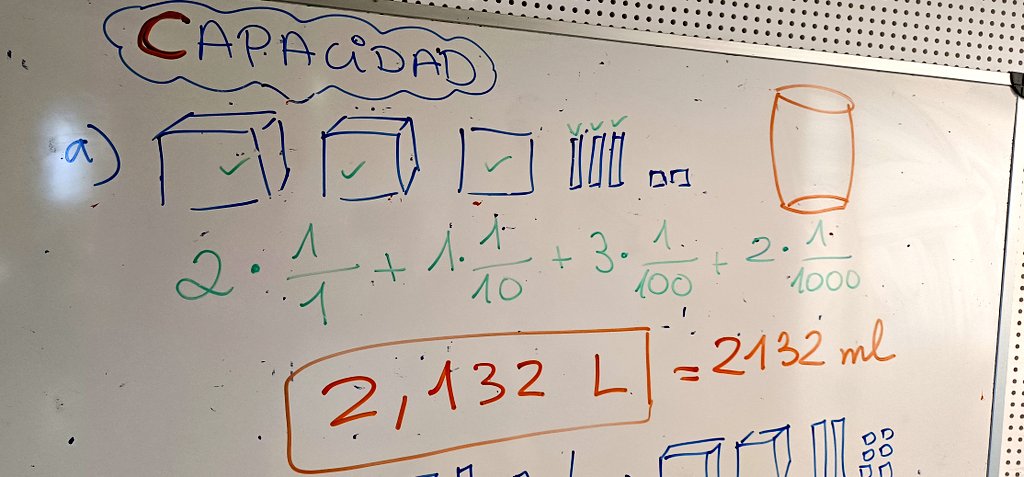 CAPACIDAD
a)
2 · 1/1 + 1 · 1/10 + 3 · 1/100 + 2 · 1/1000
2,132 L = 2132 ml